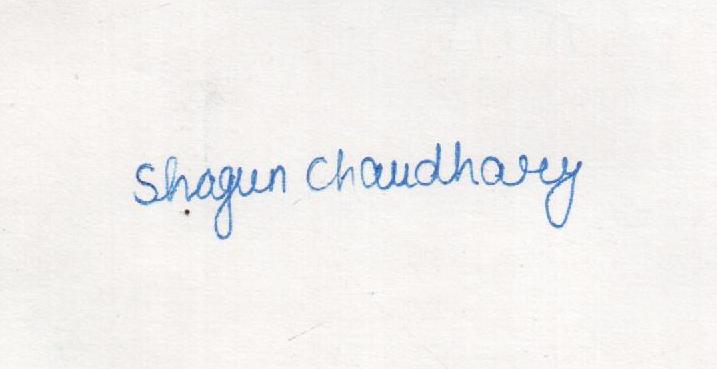 Shagun Chaudhary